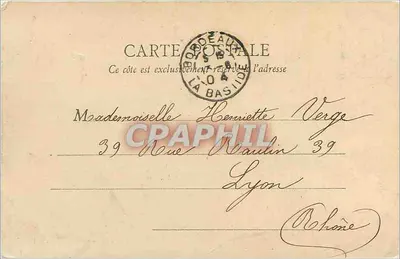 CARTE POSTALE
Ce côté est exclusivement réservé à l'adresse
BORDEAUX
04
LA BASTIDE
Mademoiselle Henriette Verge
39 Rue Raulin 39
Lyon
Rhône
CPARPHIL